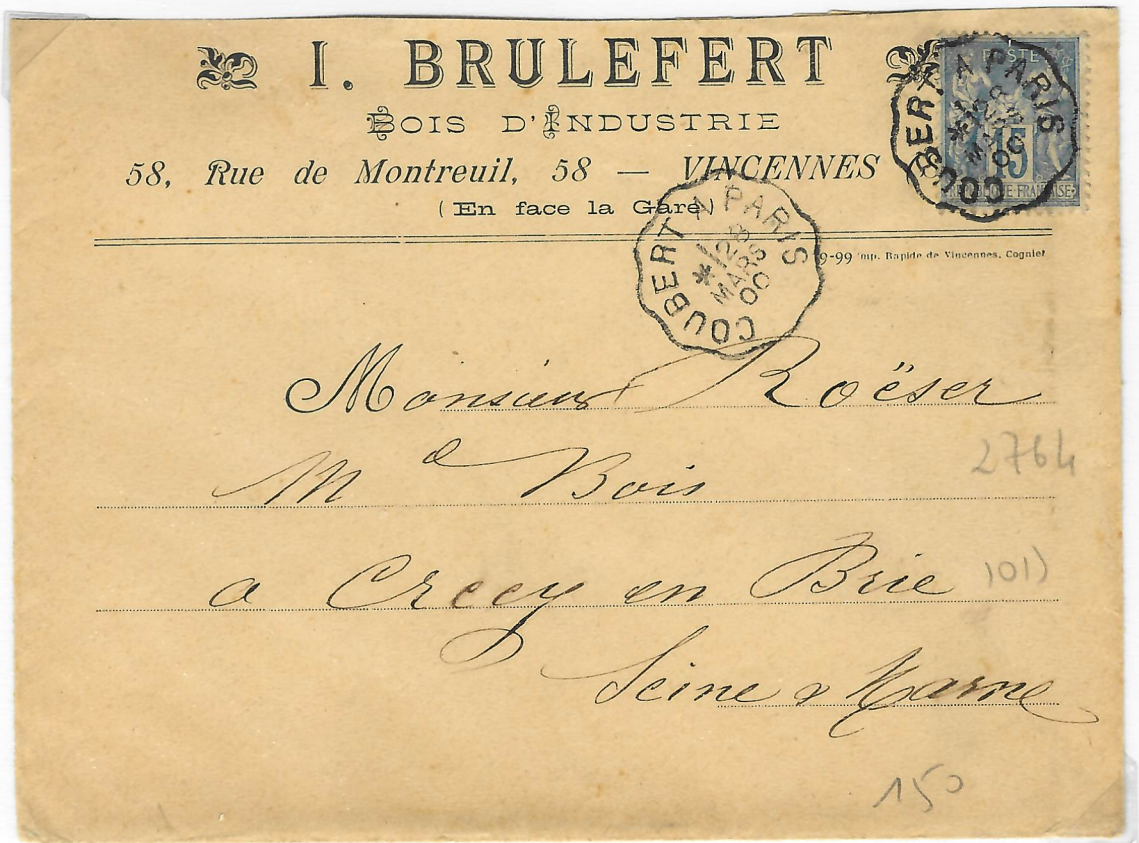 I. BRULEFERT
BOIS D'INDUSTRIE
58, Rue de Montreuil, 58 — VINCENNES
(En face la Gare)
9-99 Imp. Rapide de Vincennes, Cogniet
POSTES
15
REPUBLIQUE FRANÇAISE
COUBERT A PARIS
28
MARS
00
COUBERT A PARIS
* 28
MARS
00
Monsieur Roëser
Md Bois
a Crecy en Brie
Seine & Marne
2764
101)
150